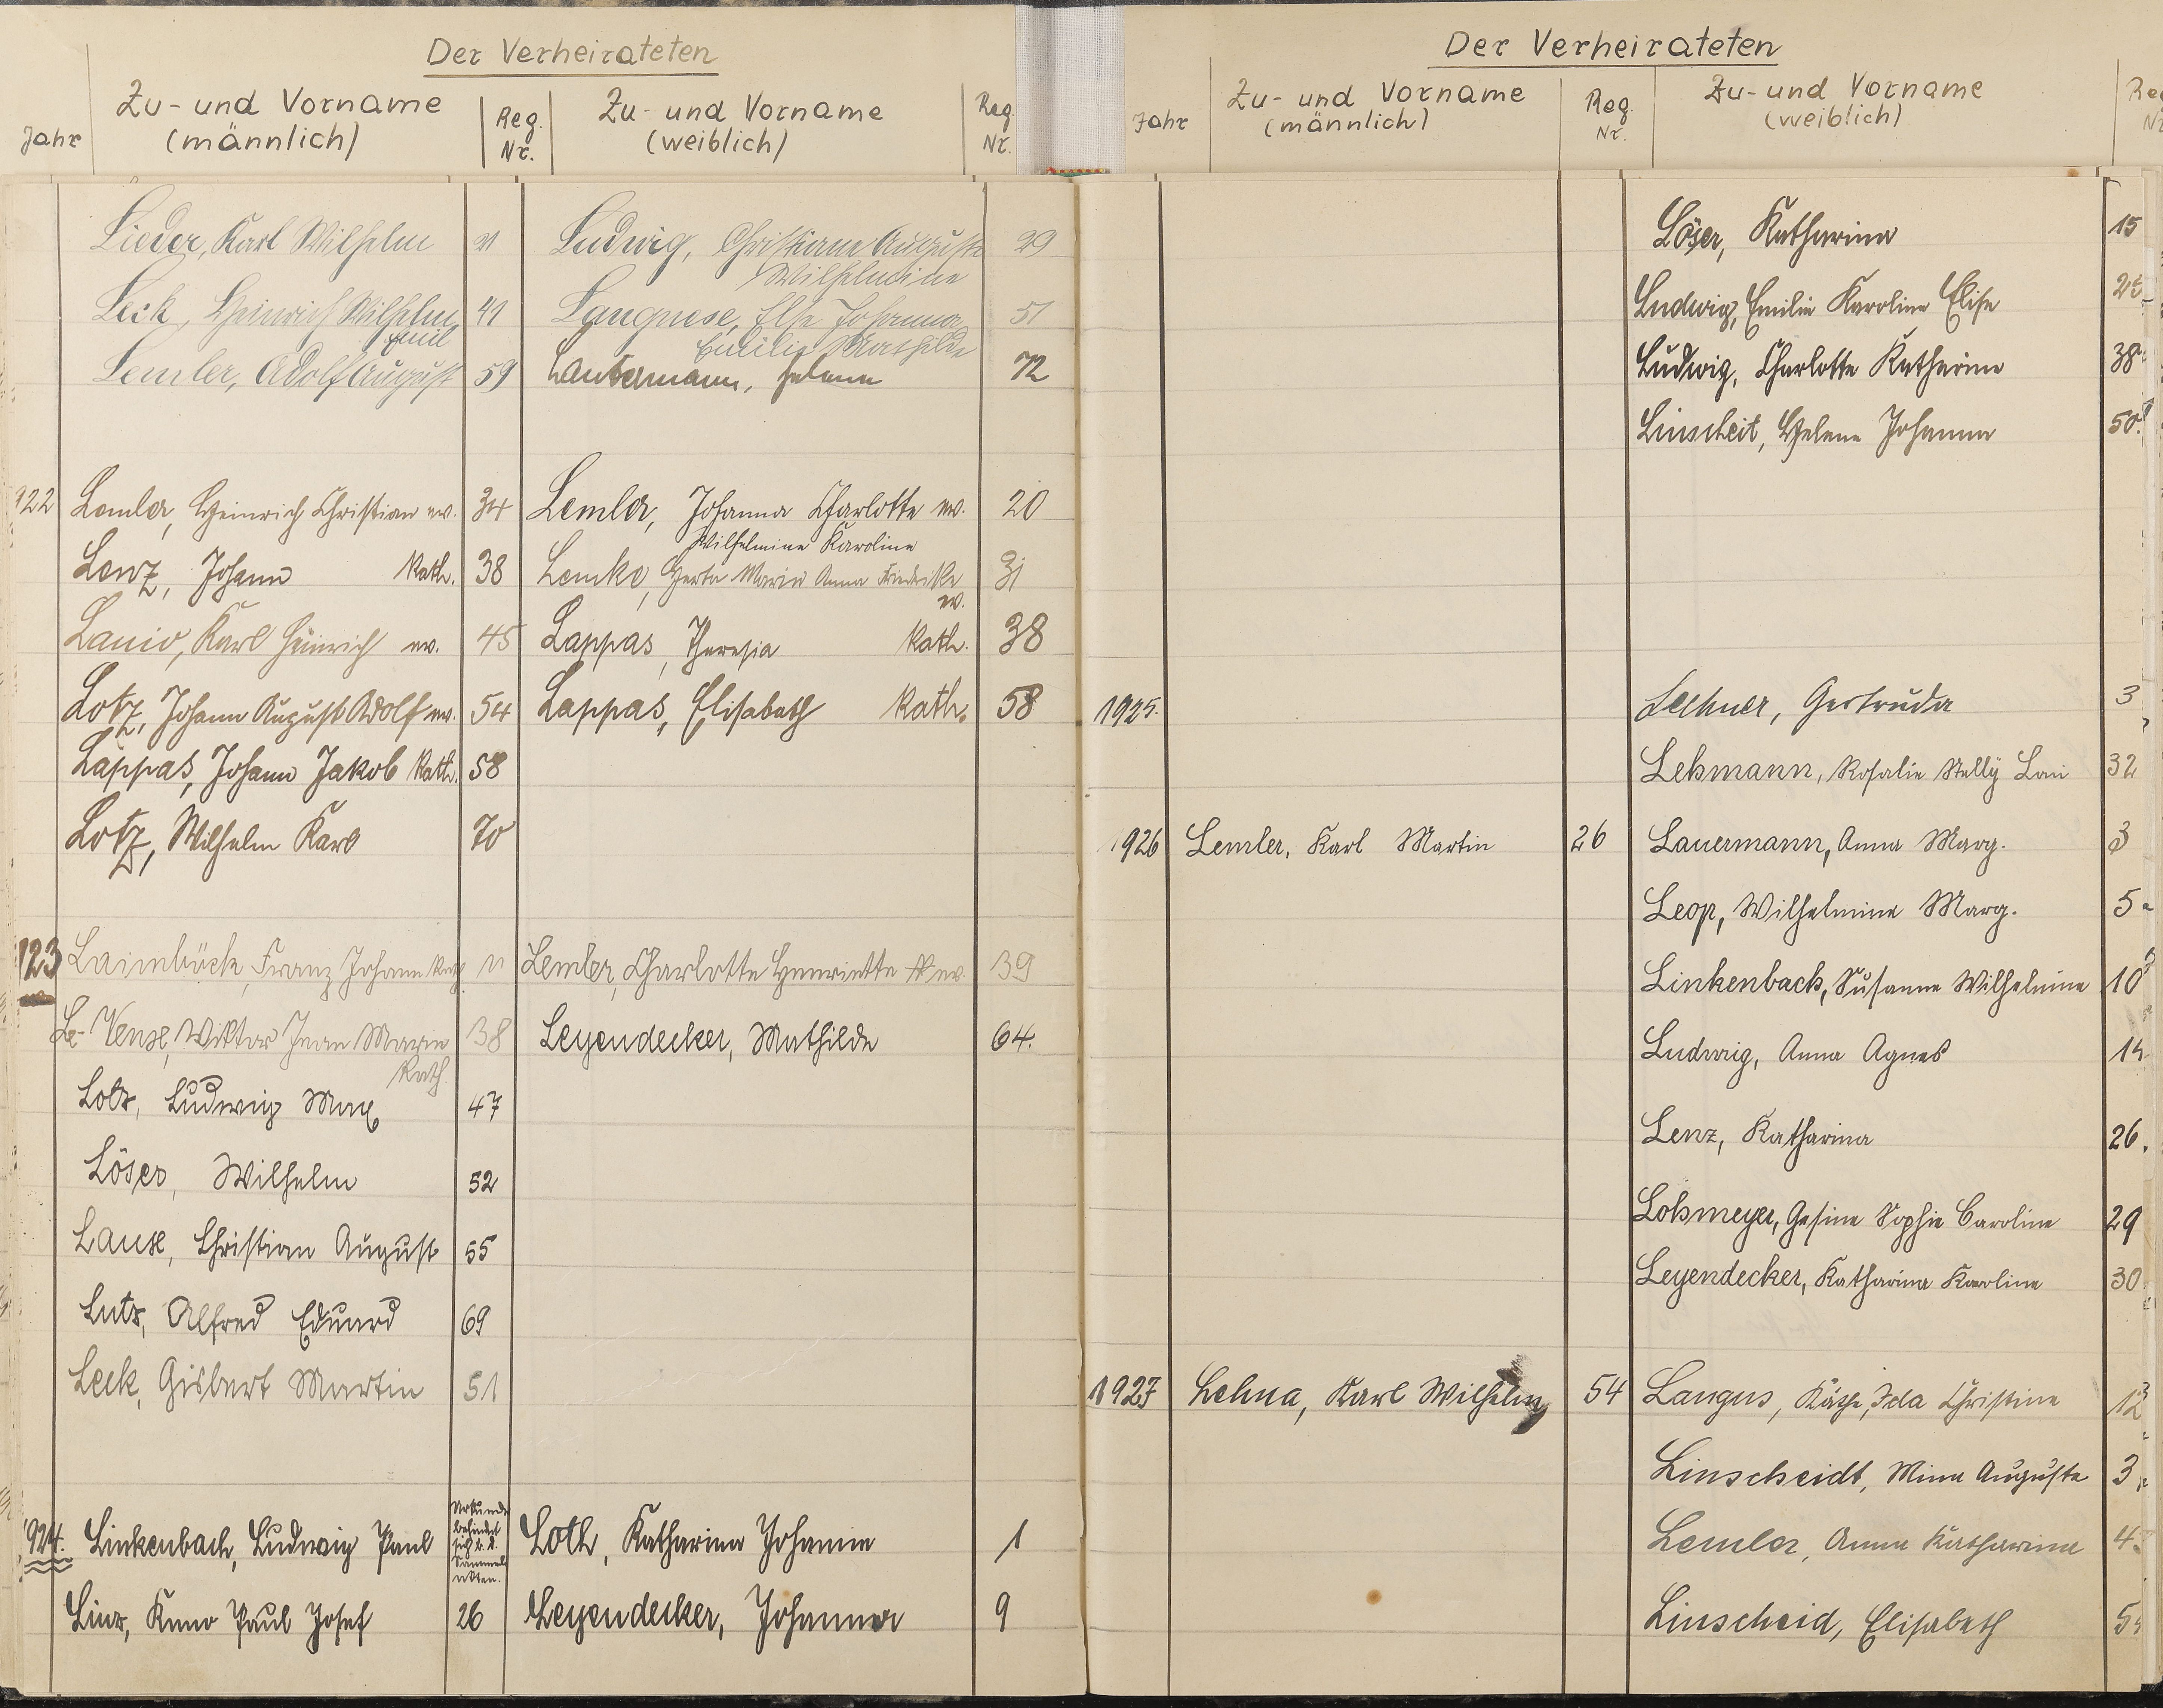 Der Verheirateten
Jahr
Zu- und Vorname
(männlich)
Reg.
Nr.
Zu- und Vorname
(weiblich)
Reg.
Nr.
Lieder, Karl Wilhelm 21 Ludwig, Christiane Auguste 29
Wilhelmine
Leck, Heinrich Wilhelm 41 Langnese, Else Johanna 51
Emil Emilie Mathilde
Lemler, Adolf August 59 Lautermann, Helene 72
922 Lemler, Heinrich Christian ev. 34 Lemler, Johanna Charlotte ev. 20
Wilhelmine Karoline
Lenz, Johann Kath. 38 Lemke, Herta Maria Anna Friedrike 31
ev.
Lanio, Karl Heinrich ev. 45 Lappas, Theresia Kath. 38
Lotz, Johann August Adolf ev. 54 Lappas, Elisabeth Kath. 58
Lappas, Johann Jakob Kath. 58
Lotz, Wilhelm Karl 70
923 Laimböck, Franz Johann 11 Lemler, Charlotte Henriette ev. 39
Le Vense, Wiktor Jean Marie 38 Leyendecker, Mathilde 64.
Kath.
Lotz, Ludwig Max 47
Löser, Wilhelm 52
Lause, Christian August 55
Lutz, Alfred Eduard 69
Leck, Gisbert Martin 51
924. Linkenbach, Ludwig Paul Urkunde befindet sich b. d. Sammelakten. Loth, Katharina Johanna 1
Linz, Kuno Paul Josef 26 Leyendecker, Johanna 9
Der Verheirateten
Jahr
Zu- und Vorname
(männlich)
Reg.
Nr.
Zu- und Vorname
(weiblich)
Löser, Katharina 15
Ludwig, Emilie Karoline Elise 25
Ludwig, Charlotte Katharine 38
Linscheit, Helene Johanna 50
1925. Lechner, Gertruda 3
Lehmann, Rosalie Nelly Loni 32
1926 Lemler, Karl Martin 26 Lauermann, Anna Marg. 3
Leop, Wilhelmine Marg. 5
Linkenbach, Susanne Wilhelmine 10
Ludwig, Anna Agnes 14
Lenz, Katharina 26.
Lohmeyer, Gesine Sophie Caroline 29
Leyendecker, Katharina Karoline 30
1927 Lehna, Karl Wilhelm 54 Langus, Käthe, Ida Christine 12
Linscheidt, Mina Auguste 3
Lemler, Anna Katharina 4
Linscheid, Elisabeth 5